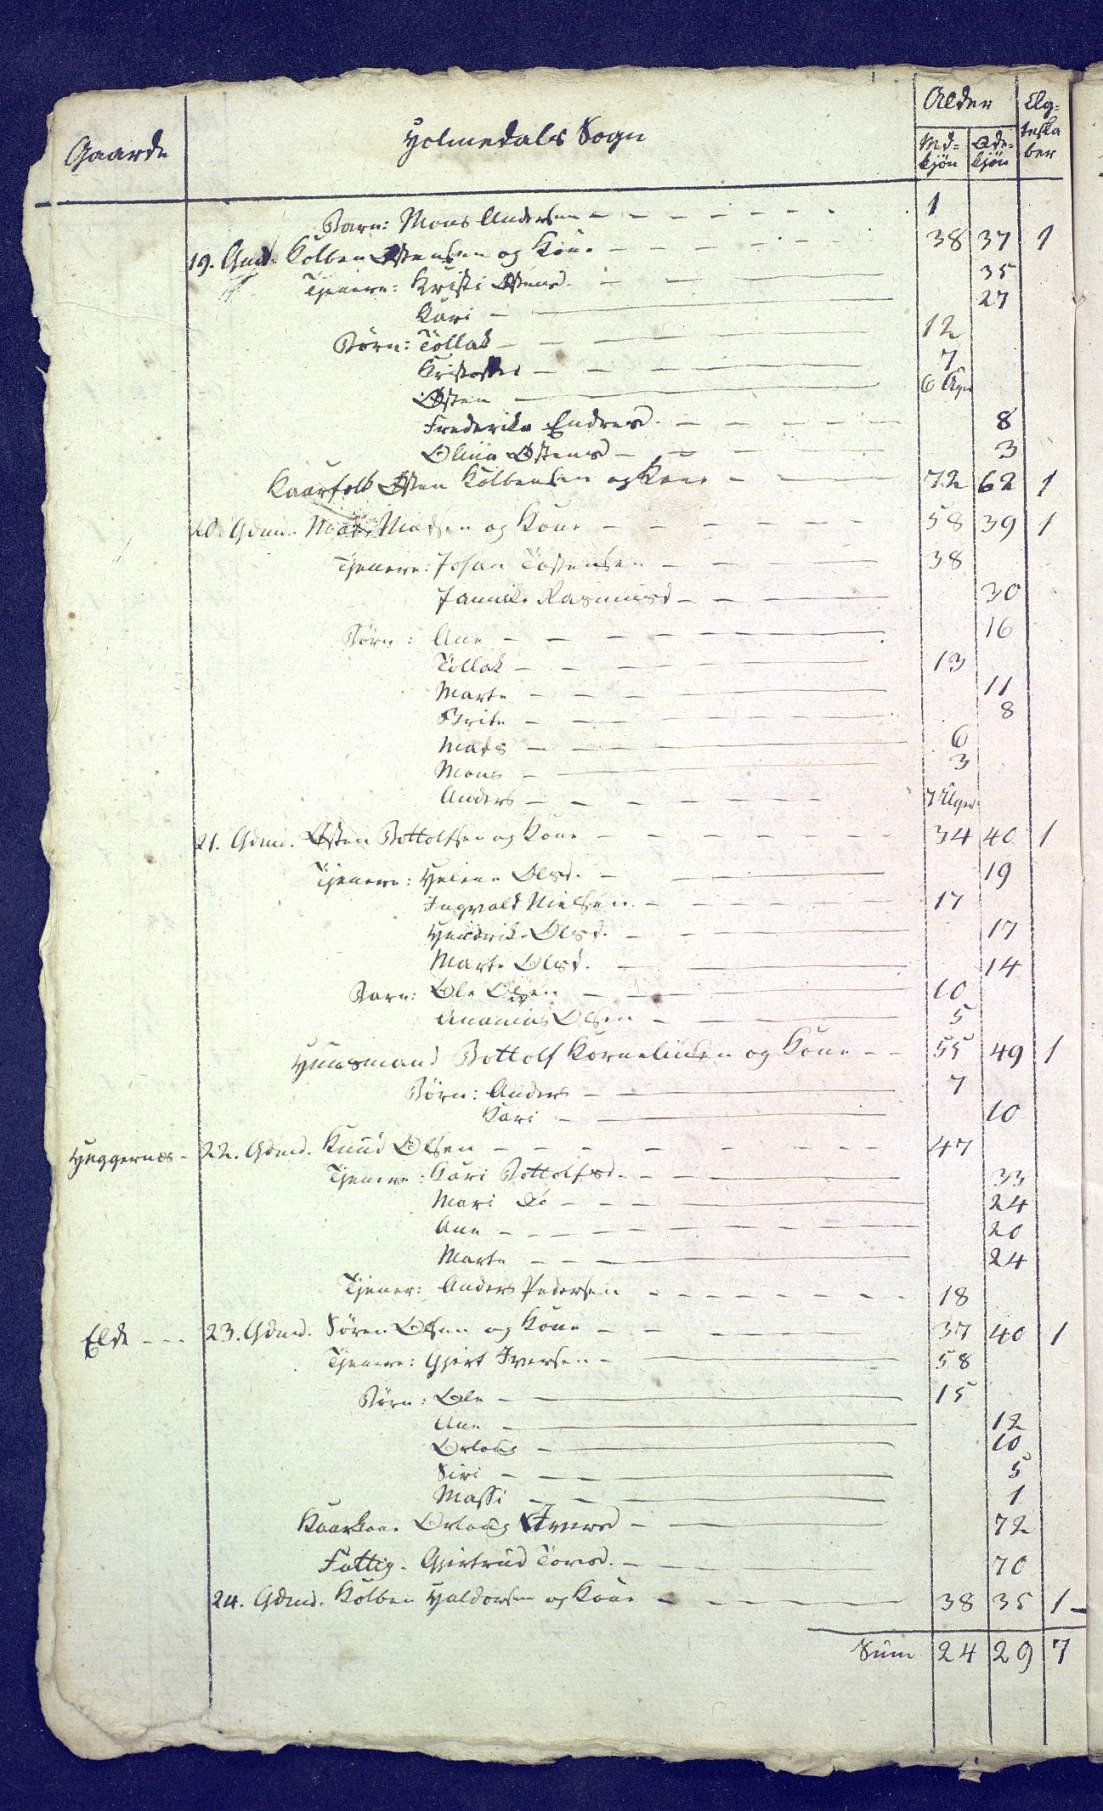 Gaarde Holmedals Sogn Alder Ægteskaber
Md-kjön Qde-kjön
Barn: Mons Andersen 1
19. Gmd. Kolben Østensen og Kone 38 37 1
Tjenere: Kristi Østensd. 35
Kari 27
Börn: Tollak 12
Kristoffer 7
Østen 6 Uger
Frederike Endresd. 8
Olina Østensd 3
Kaarfolk Østen Kolbensen og Kone 72 62 1
20. Gdmd. Mads Madsen og Kone 58 39 1
Tjenere: Johan Tostensen 38
Jannike Rasmusd 30
Börn: Ane 16
Tollak 13
Marte 11
Brite 8
Mads 6
Mons 3
Anders 7 Uger
21. Gdmd. Østen Bottolfsen og Kone 34 40 1
Tjenere: Helene Olsd. 19
Ingvald Nielsen 17
Hendrik. Olsd. 17
Marte Olsd. 14
Barn: Ole Olsen 10
Ananias Olsen 5
Huusmand Bottolf Korneliusen og Kone 55 49 1
Börn: Anders 7
Kari 10
Huggernæs - 22. Gdmd. Knud Olsen 47
Tjenere: Kari Bottolfsd. 33
Mari Do 24
Ane 20
Marte 24
Tjener: Anders Pedersen 18
Elde 23. Gdmd. Sören Olsen og Kone 37 40 1
Tjenere: Gjert Iversen 58
Börn: Ole 15
Ane 12
Orlaug 10
Siri 5
Massi 1
Kaarkone Orlaug Iversd 72
Fattig. Gjertrud Toresd. 70
24. Gdmd. Kolben Haldorsen og Kone 38 35 1
Sum 24 29 7